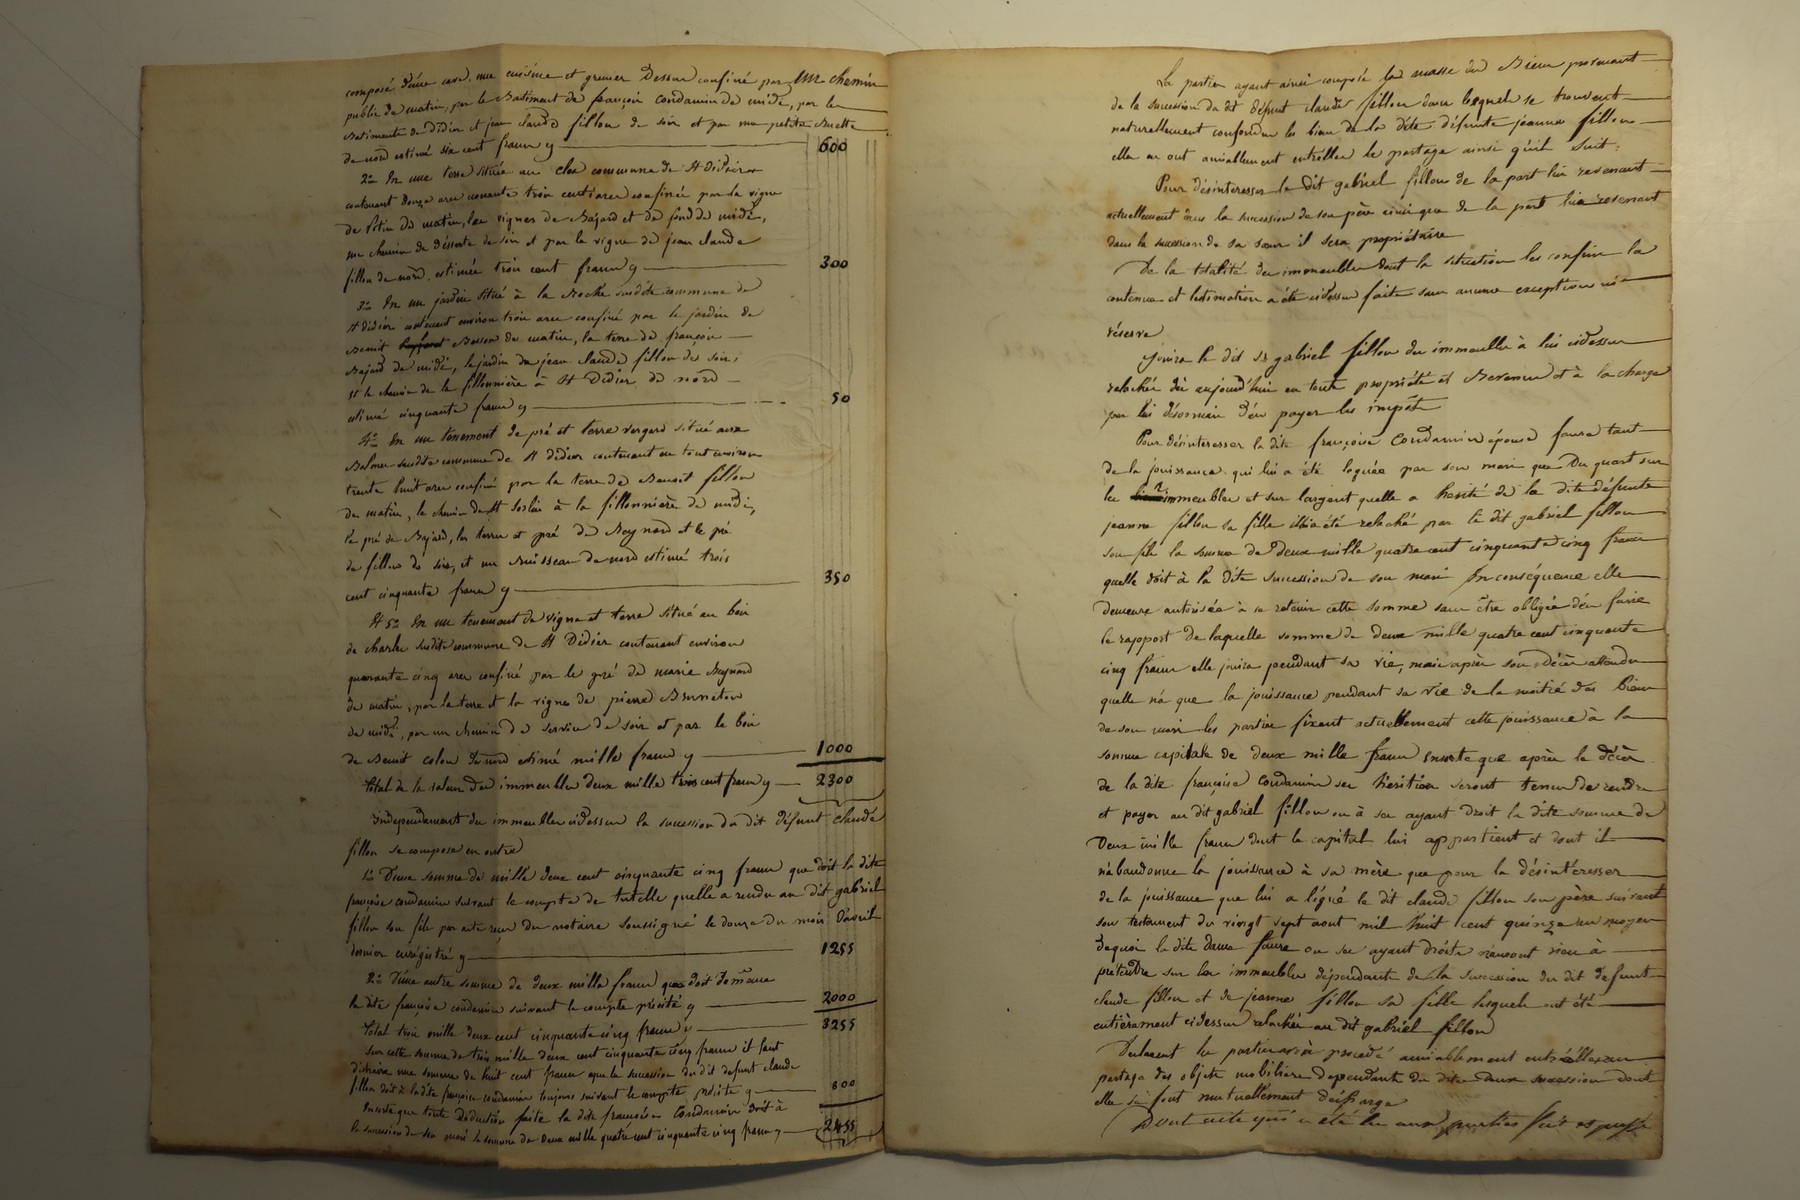 composé d'une cave, une cuisine et grenier dessus confiné par un chemin
public de matin, par le Batiment de françois Condamin de midi, par les
Batiments de Didier et jean claude fillon de soir et par une petite Ruette
de nord estimé six cent francs cy 600
2o En une terre située au clos commune de St didier
contenant douze ares nonante trois centiares confinée par la vigne
de de matin, les vignes de Bajard et de de midi,
un chemin de désserte de soir et par la vigne de jean claude
fillon de nord. estimée trois cent francs cy 300
3o En un jardin situé à la Roche susdite commune de
St didier contenant environ trois ares confiné par le jardin de
Benoit Besson de matin, la terre de françois
Bajard de midi, le jardin de jean claude fillon de soir;
et le chemin de la fillonnière à St Didier de nord
estimé cinquante francs cy 50
4o En un tenement de pré et terre verger situé aux
Balmes susdite commune de St didier contenant en tout environ
trente huit ares confiné par la terre de Benoit fillon
de matin, le chemin de St Sorlin à la fillonnière de midi,
le pré de Bajard, les terres et pré de Reynard et le pré
de fillon de soir, et un Ruisseau de nord estimé trois
cent cinquante francs cy 350
5o En un tenement de vigne et terre situé au bois
de charles susdite commune de St Didier contenant environ
quarante cinq ares confiné par le pré de marie Reynard
de matin, par la terre et la vigne de pierre
de midi, par un chemin de service de soir et par le bois
de Benoit colon de nord estimé mille francs cy 1000
Total de la valeur des immeubles deux mille trois cent francs cy 2300
Indépendament des immeubles cidessus la succession du dit défunt claude
fillon se compose en outre
1o D'une somme de mille deux cent cinquante cinq francs que doit la dite
françoise condamin suivant le compte de tutelle quelle a rendu au dit gabriel
fillon son fils par acte reçu du notaire soussigné le douze du mois d'avril
dernier enrégistré cy 1255
2o D'une autre somme de deux mille francs que doit de même
la dite françoise condamin suivant le compte précité cy 2000
Total trois mille deux cent cinquante cinq francs cy 3255
Sur cette somme de trois mille deux cent cinquante cinq francs il faut
distraire une somme de huit cent francs que la succession du dit defunt claude
fillon doit à la dite françoise condamin toujours suivant le compte précité cy 800
Ensorte que toute déduction faite la dite françoise Condamin doit à
la succession de son mari la somme de deux mille quatre cent cinquante cinq francs cy 2455
Les parties ayant ainsi composé la masse des Biens provenant
de la succession du dit défunt claude fillon dans lequel se trouvent
naturellement confondus les biens de la dite défunte jeanne fillon
elles en ont amiablement entrelles le partage ainsi qu'il suit:
Pour désinteresser le dit gabriel fillon de la part lui revenant
actuellement dans la succession de son père ainsi que de la part lui revenant
dans la succession de sa sœur il sera propriétaire
De la totalité des immeubles dont la situation les confins la
contenue et lestimation a été cidessus faite sans aucune exception ni
réserve
Jouira le dit sr gabriel fillon des immeubles à lui cidessus
relachés dès aujourd'hui en toute propriété et Revenus et à la charge
par lui désormais d'en payer les impôts
Pour désinteresser la dite françoise Condamin épouse faure tant
de la jouissance qui lui a été léguée par son mari que Du quart sur
les immeubles et sur largent quelle a hérité de la dite défunte
jeanne fillon sa fille il lui a été relaché par le dit gabriel fillon
son fils la somme de Deux mille quatre cent cinquante cinq francs
quelle doit à la dite succession de son mari En conséquence elle
demeure autorisée à se retenir cette somme sans être obligée d'en faire
le rapport De laquelle somme de deux mille quatre cent cinquante
cinq francs elle jouira pendant sa vie, mais après son décès attendu
quelle n'a que la jouissance pendant sa vie de la moitié des biens
de son mari les parties fixent actuellement cette jouissance à la
somme capitale de deux mille francs ensorte que après le décès
de la dite françoise Condamin ses héritiers seront tenus de rendre
et payer au dit gabriel fillon ou à ses ayant droit la dite somme de
Deux mille francs dont le capital lui appartient et dont il
n'abandonne la jouissance à sa mère que pour la désintéresser
de la jouissance que lui a légué le dit claude fillon son père suivant
son testament du vingt sept aout mil huit cent quinze au moyen
dequoi la dite dame faure ou ses ayant droits n'auront rien à
prétendre sur les immeubles dépendants de la succession du dit defunt
claude fillon et de jeanne fillon sa fille lesquels ont été
entièrement cidessus relachés au dit gabriel fillon
Declarent les parties avoir procédé amiablement entrelles au
partage des objets mobiliers dependants des dites deux succession dont
elles se font mutuellement décharge
Dont acte qui a été lu aux parties fait et passé